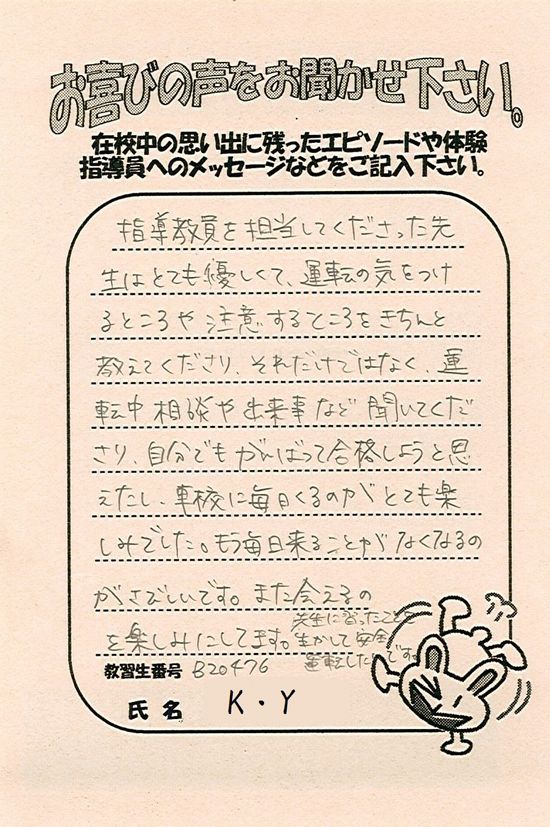 お喜びの声をお聞かせ下さい。
在校中の思い出に残ったエピソードや体験
指導員へのメッセージなどをご記入下さい。
指導教員を担当してくださった先
生はとても優しくて、運転の気をつけ
るところや注意するところをきちんと
教えてくださり、それだけではなく、運
転中相談や出来事など聞いてくだ
さり、自分でもがんばって合格しようと思
えたし、車校に毎日くるのがとても楽
しみでした。もう毎日来ることがなくなるの
がさびしいです。また会えるの
を楽しみにしてます。
先生に習ったことを
生かして安全
運転したいです。
教習生番号 B20476
氏名 K・Y